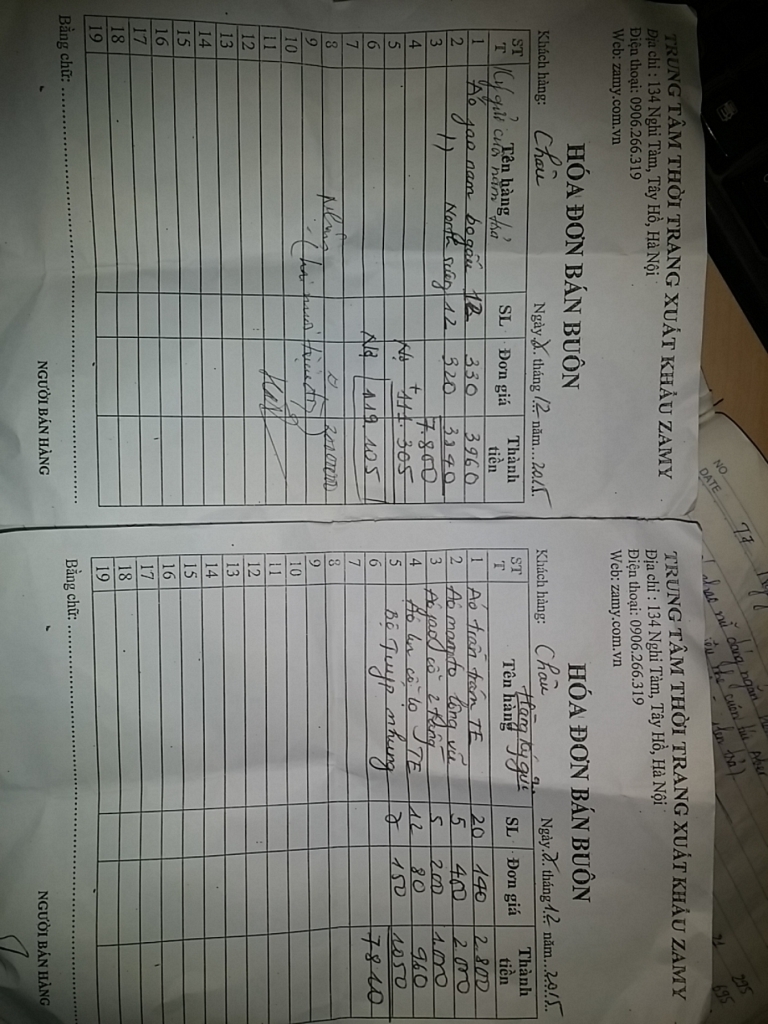 TRUNG TÂM THỜI TRANG XUẤT KHẨU ZAMY
Địa chỉ : 134 Nghi Tàm, Tây Hồ, Hà Nội
Điện thoại: 0906.266.319
Web: zamy.com.vn
HÓA ĐƠN BÁN BUÔN
Ngày 2 tháng 12 năm 2015
Khách hàng: Châu
ST T Tên hàng SL Đơn giá Thành tiền
Ký gửi cuối năm trả
1 Áo jao nam bo gấu 12 330 3960
2 11 North 12 320 3840
3 7.800
4
5 Nợ +111.305
6 Nợ 119.105
7
8 20.000.000
9 (hai mươi triệu)
10
11
12
13
14
15
16
17
18
19
Bằng chữ:
NGƯỜI BÁN HÀNG
TRUNG TÂM THỜI TRANG XUẤT KHẨU ZAMY
Địa chỉ : 134 Nghi Tàm, Tây Hồ, Hà Nội
Điện thoại: 0906.266.319
Web: zamy.com.vn
HÓA ĐƠN BÁN BUÔN
Ngày 2 tháng 12 năm 2015
Khách hàng: Châu
Hàng ký gửi
ST T Tên hàng SL Đơn giá Thành tiền
1 Áo trần trám TE 20 140 2.800
2 Áo manto lông vũ 5 400 2.000
3 Áo jao cổ 2 khóa 5 200 1.000
4 Áo len cổ lọ TE 12 80 960
5 Bộ Tuyp nhung 7 150 1050
6 7.810
7
8
9
10
11
12
13
14
15
16
17
18
19
Bằng chữ:
NGƯỜI BÁN HÀNG
NO
DATE
295
695